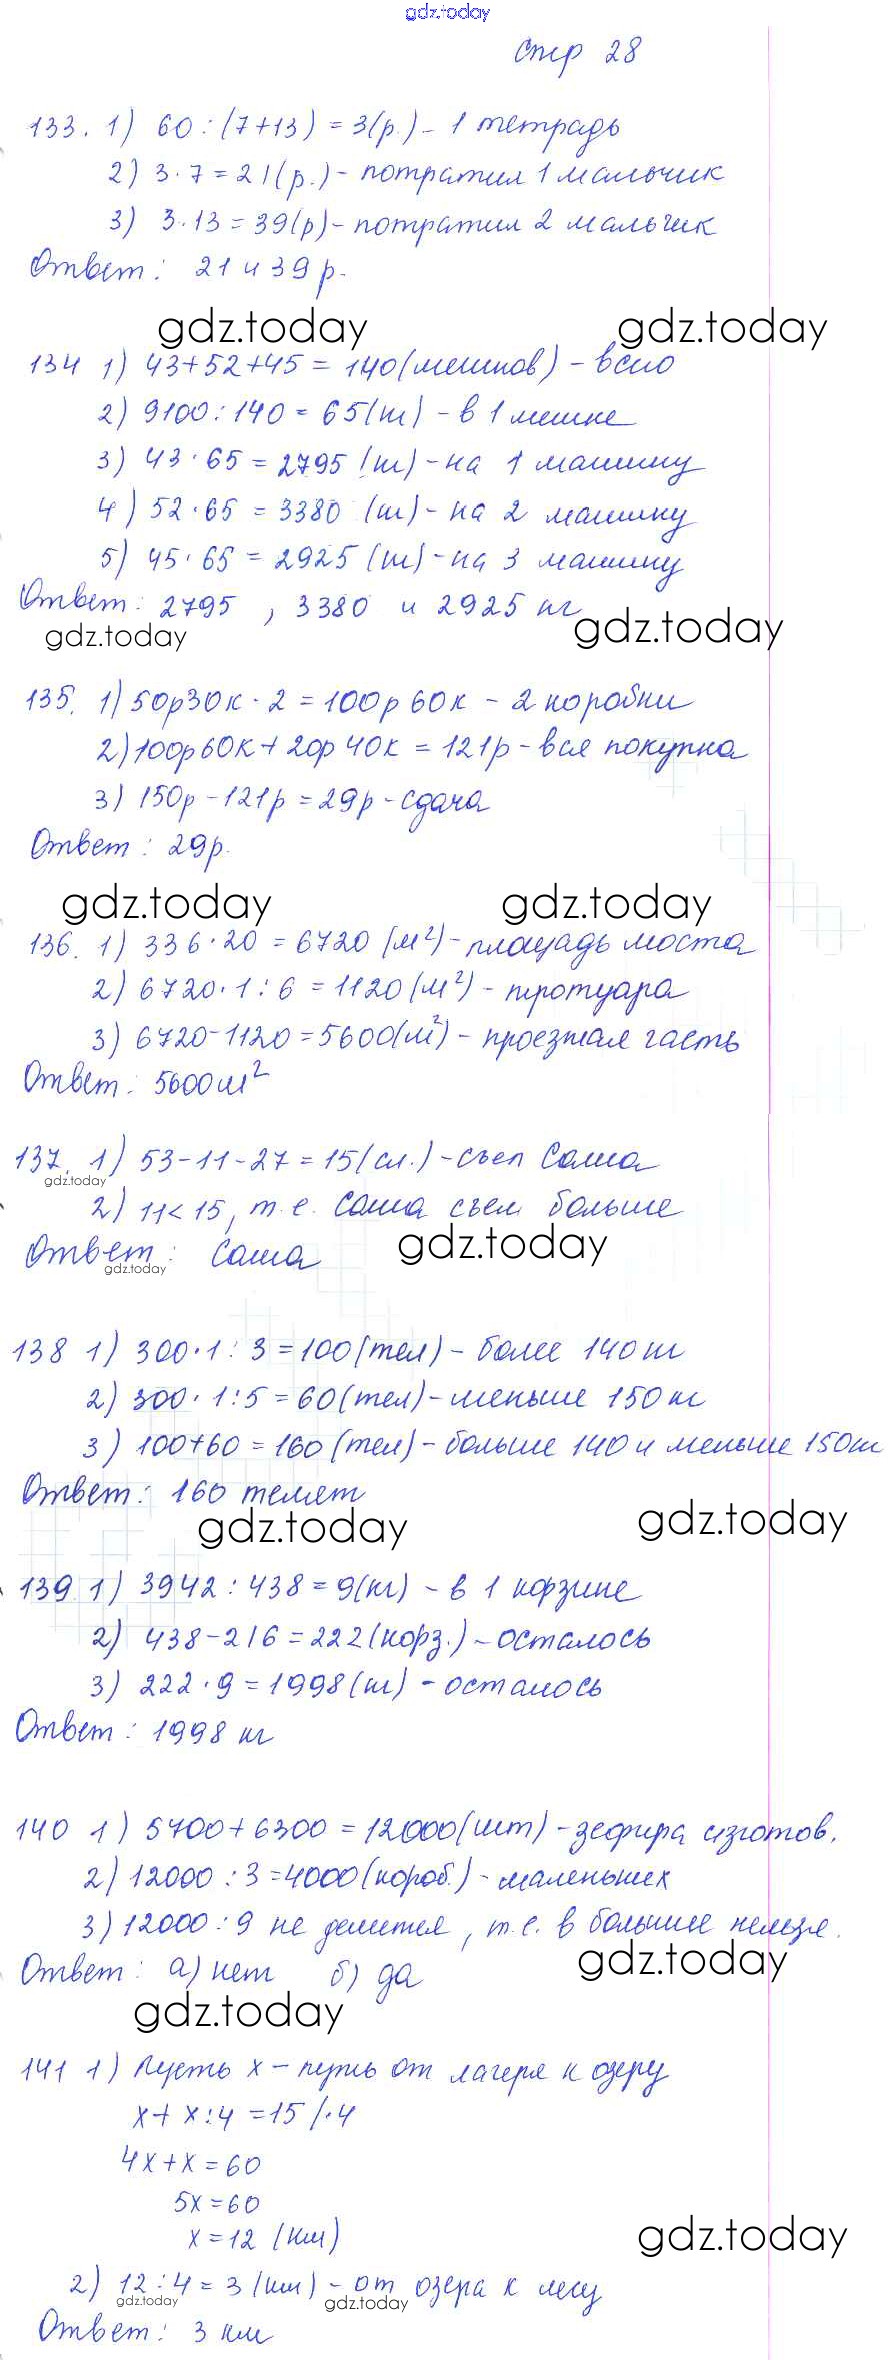 gdz.today
Стр 28
133. 1) 60 : (7+13) = 3(р.) - 1 тетрадь
2) 3·7=21(р.) - потратил 1 мальчик
3) 3·13=39(р) - потратил 2 мальчик
Ответ: 21 и 39 р.
gdz.today gdz.today
134 1) 43+52+45 = 140(мешков) - всего
2) 9100:140 = 65(кг) - в 1 мешке
3) 43·65 = 2795 (кг) - на 1 машину
4) 52·65 = 3380 (кг) - на 2 машину
5) 45·65 = 2925 (кг) - на 3 машину
Ответ: 2795, 3380 и 2925 кг
gdz.today gdz.today
135. 1) 50р30к·2 = 100р 60к - 2 коробки
2) 100р60к + 20р 40к = 121р - вся покупка
3) 150р - 121р = 29р - сдача
Ответ: 29р.
gdz.today gdz.today
136. 1) 336·20 = 6720 (м²) - площадь моста
2) 6720·1:6 = 1120(м²) - тротуара
3) 6720-1120=5600(м²) - проезжая часть
Ответ: 5600м²
137. 1) 53-11-27=15(сл.) - съел Саша
gdz.today
2) 11<15, т.е. Саша съел больше
Ответ: Саша
gdz.today gdz.today
138 1) 300·1:3=100(тел) - более 140кг
2) 300·1:5=60(тел) - меньше 150кг
3) 100+60=160(тел) - больше 140 и меньше 150кг
Ответ: 160 телят
gdz.today gdz.today
139 1) 3942:438=9(кг) - в 1 корзине
2) 438-216=222(корз.) - осталось
3) 222·9=1998(кг) - осталось
Ответ: 1998 кг
140 1) 5700+6300=12000(шт) - зефира изготов.
2) 12000:3=4000(короб.) - маленьких
3) 12000:9 не делится, т.е. в большие нельзя.
Ответ: а) нет б) да
gdz.today gdz.today
141 1) Пусть х - путь от лагеря к озеру
х+х:4=15/·4
4х+х=60
5х=60
х=12 (км)
gdz.today
2) 12:4=3(км) - от озера к лесу
gdz.today gdz.today
Ответ: 3 км